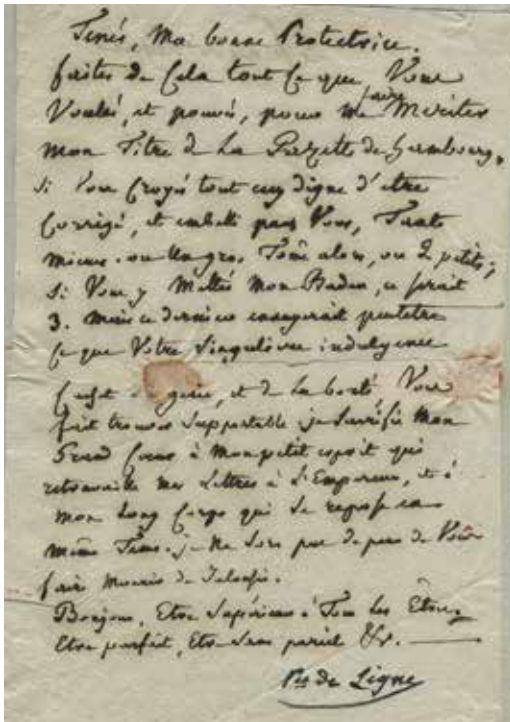 Tenés, Ma bonne Protectrice.
faites de Cela tout Ce que Vous
Voulés, et pouvés, pour me faire Meriter
mon Titre de La Gazette de hambourg.
Si Vous Croyés tout digne d'etre
Corrigé, et embelli par Vous, Tant
mieux. ou Un gros Tome alors, ou 2 petits;
Si Vous y Mettés Mon Baden, ce serait
3. Mais ce dernier ennuyerait peutetre
Ce que Votre Singuliere indulgence
et de La bonté Vous
fait trouver Supportable. je Sacrifie Mon
Grand Coeur à Mon petit esprit qui
retravaille mes Lettres à L'Empereur, et à
mon Long Corps qui Se repose en
même Tems. je Ne Sors pas de peur de Vous
faire Mourir de Jalousie.
Bonjour, Etre Supérieur à Tous Les Êtres,
Etre parfait, Etre Sans pareil &c.
Pce de Ligne